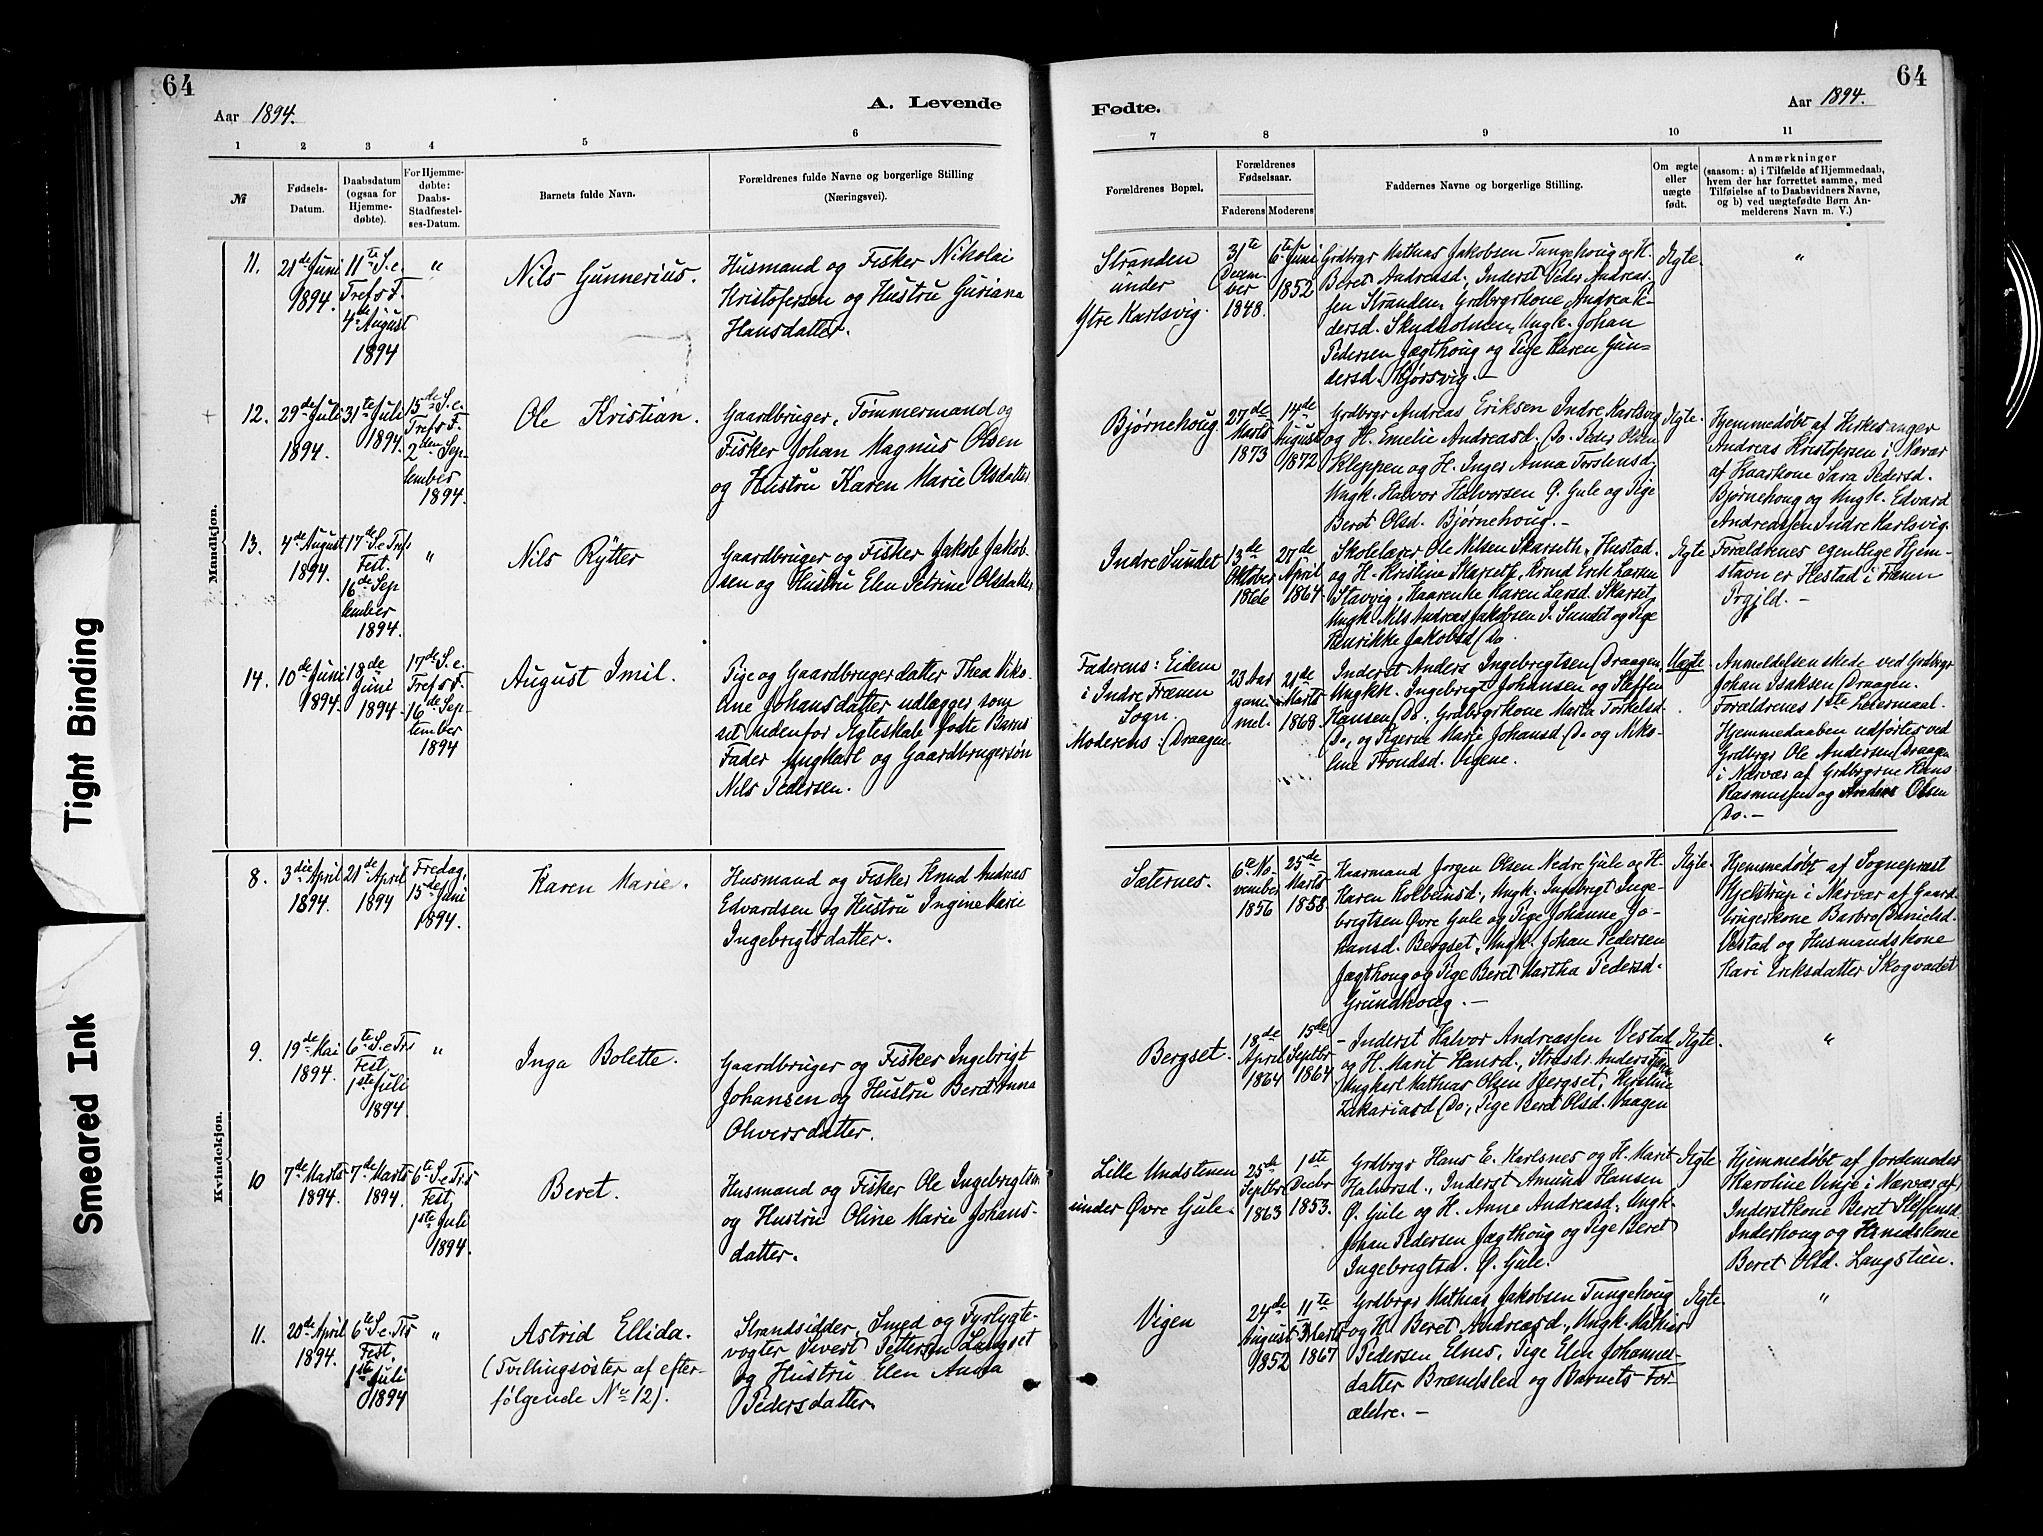 64
Aar 1894.
A. Levende
1 2 3 4 5 6
№
Fødsels-
Datum.
Daabsdatum
(ogsaa for
Hjemme-
døbte).
For Hjemme-
døbte:
Daabs-
Stadfæstel-
ses-Datum.
Barnets fulde Navn.
Forældrenes fulde Navne og borgerlige Stilling
(Næringsvei).
Mandkjøn.
11.
21de Juni
1894.
11te S. e.
Tref's F.
4de August
1894
"
Nils Gunnerius.
Husmand og Fisker Nikolai
Kristofersen og Hustru Guriana
Hansdatter.
12.
29de Juli
1894.
31te Juli
1894.
15de S. e.
Tref's F.
2den Sep-
tember
1894.
Ole Kristian.
Gaardbruger, Tømmermand og
Fisker Johan Magnus Olsen
og Hustru Karen Marie Olsdatter
13.
4de August
1894.
17de S. e Tref's
Fest.
16de Sep
tember
1894.
"
Nils Rytter
Gaardbruger og Fisker Jakob Jakob-
sen og Hustru Elen Petrine Olsdatter
14.
10de Juni
1894.
18de
Juni
1894.
17de S. e.
Tref's F.
16de Sep-
tember
1894
August Imil.
Pige og Gaardbrugerdatter Thea Niko-
line Johansdatter udlægger som
sit udenfor Ægteskab fødte Barns
Fader Ungkarl og Gaardbrugersøn
Nils Pedersen.
Kvindekjøn.
8.
3die April
1894.
21de April
1894
Fredag,
15de Juni
1894.
Karen Marie.
Husmand og Fisker Knud Andreas
Edvardsen og Hustru Ingine Marie
Ingebrigtsdatter.
9.
19de Mai
1894.
6te S. e Trs
Fest.
1ste Juli
1894.
"
Inga Bolette.
Gaardbruger og Fisker Ingebrigt
Johansen og Hustru Beret Anna
Oliversdatter.
10
7de Marts
1894.
7de Marts
1894.
6te S. e Trs
Fest,
1ste Juli
1894.
Beret.
Husmand og Fisker Ole Ingebrigtsen
og Hustru Oline Marie Johans-
datter.
11.
20de April
1894.
6te S. e. Trs
Fest.
1ste Juli
1894
"
Astrid Ellida.
(Tvillingsøster af efter-
følgende No 12).
Strandsidder, Smed og Fyrlygte-
vogter Sivert Pettersen Langset
og Hustru Elen Anna
Pedersdatter.
64
Fødte.
Aar 1894.
7 8 9 10 11
Forældrenes Bopæl.
Forældrenes
Fødselsaar.
Faderens Moderens
Faddernes Navne og borgerlige Stilling.
Om ægte
eller
uægte
født.
Anmærkninger
(saasom: a) i Tilfælde af Hjemmedaab,
hvem der har forrettet samme, med
Tilføielse af to Daabsvidners Navne,
og b) ved uægtefødte Børn An-
melderens Navn m. V.)
Stranden
under
Ytre Karlsvig.
31te
Decem-
ber
1848.
6te Juni
1852
Grdbrgr Mathias Jakobsen Tungehoug og H.
Beret Andreasd., Inderst Peder Andreas-
sen Stranden, Grdbrgrkone Andrea Pe-
dersd. Skudholmen, Ungk. Johan
Pedersen Jægthoug og Pige Karen Gun-
dersd.
Ægte.
"
Bjørnehoug
27de
Marts
1873
14de
August
1872
Grdbrgr Andreas Eriksen Indre Karlsvig
og H. Emelie Andreasd. Do. Peder Olsen
Kleppen og H. Inger Anna Torstensd,
Ungk. Halvor Halvorsen Ø. Gule og Pige
Beret Olsd. Bjørnehoug.-
Ægte.
Hjemmedøbt af Kirkesanger
Andreas Kristofersen i Nærvær
af Kaarkone Sara Pedersd.
Bjørnehoug og Ungk. Edvard
Andreassen Indre Karlsvig.
Indre Sundet
13de
Oktober
1866
27de
April
1864
Skolelærer Ole Nilsen Skarseth, Hustad.
og H. Kristine Skarseth, Krmd Erik Larsen
Stavvig, Kaarenke Karen Larsd. Skarset,
Ungk. Nils Andreas Jakobsen I. Sundet og Pige
Henrikke Jakobsd Do.
Ægte
Forældrenes egentlige Hjem-
stavn er Hestad i Frænen
Prgjld.-
Faderens: Eidem
i Indre Frænen
Sogn.
Moderens: Draagen.
23 Aar
gam-
mel.
21de
Marts
1869.
Inderst Anders Ingebrigtsen Draagen,
Ungkk. Ingebrigt Johansen og Steffen
Hansen Do. Grdbrgrkone Marta Torkelsd.
Do., og Pigerne Marie Johansd. Do og Niko-
line Trondsd. Vigene.
Uægte.
Anmeldelsen skede ved Grdbrgr
Johan Isaksen Draagen.
Forældrenes 1ste Leiermaal.
Hjemmedaaben udførtes ved
Grdbrgr Ole Andersen Draagen
i Nærvær af Grdbrgrne Hans
Rasmussen og Andreas Olsen
Do.-
Sæternes.
6te No-
vember
1856
25de
Marts
1858.
Kaarmand Jørgen Olsen Nedre Gule og H.
Karen Kolbeinsd., Ungk. Ingebrigt Inge-
brigtsen Øvre Gule og Pige Johanne Jo-
hansd. Bergset, Ungk. Johan Pedersen
Jægthoug og Pige Beret Martha Pedersd.
Grundhoug.-
Ægte.
Hjemmedøbt af Sogneprest
Hjelstrup i Nærvær af Gaard-
brugerkone Barbro Danielsd.
Vestad og Husmandskone
Kari Eriksdatter Skogvadet
Bergset.
18de
April
1864
15de
Septbr
1864
Inderst Halvor Andreassen Vestad
og H. Marit Hansd., Strdsdr. Anders
Ungkarl Mathias Olsen Bergset,
Zakariasd Do., Pige Beret Olsd. Vaagen
Ægte.
"
Lille Undstenen
under Øvre Gule.
25de
Septbr
1863
1ste
Decbr
1853.
Grdbrgr Hans E. Karlsnes og H. Marit
Halvorsd., Inderst Amund Hansen
Ø. Gule og H. Anne Andreasd., Ungk.
Johan Pedersen Jægthoug og Pige Beret
Ingebrigtsd. Ø. Gule.
Ægte.
Hjemmedøbt af Jordemoder
Karoline Vinje i Nærvær af
Inderstkone Beret Steffensd.
Inderhoug og Hsmdskone
Beret Olsd. Langstien.
Vigen
24de
August
1852
11te
Marts
1867
Grdbrgr Mathias Jakobsen Tungehoug
og H. Beret Andreasd., Ungk. Mathias
Pedersen Elnes, Pige Elen Johannes-
datter Brændslen og Barnets For-
ældre.-
Ægte.
"
Tight Binding
Smeared Ink